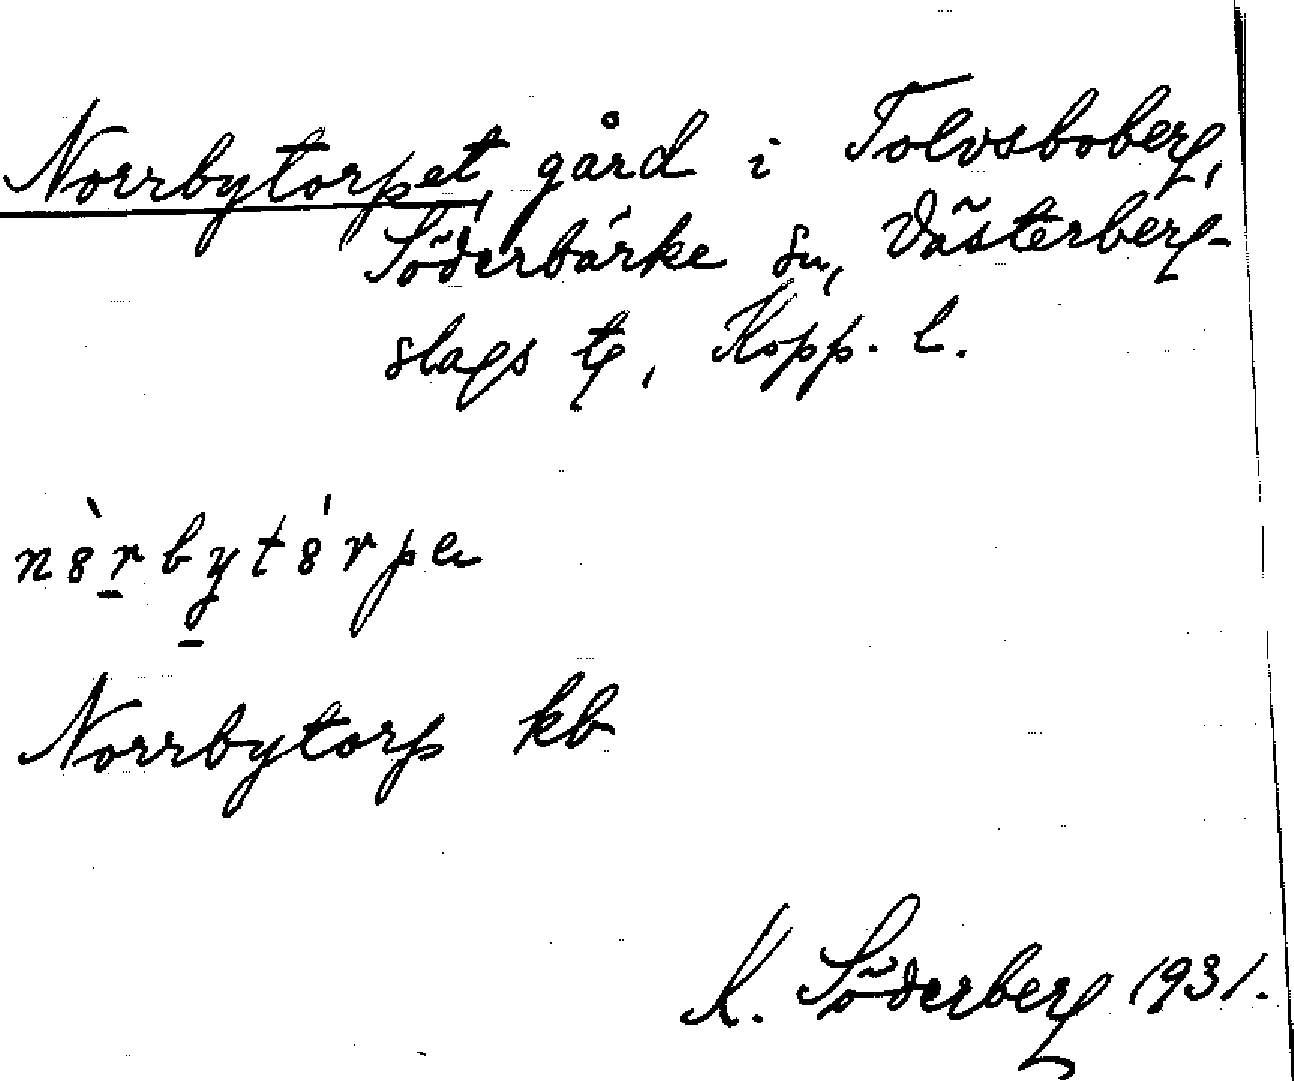 Norrbytorpet, gård i Tolvsboberg,
Söderbärke sn, Västerberg-
slags tg, Kopp. l.
n8̀rbyt8́rpe
Norrbytorp kb
K. Söderberg 1931.